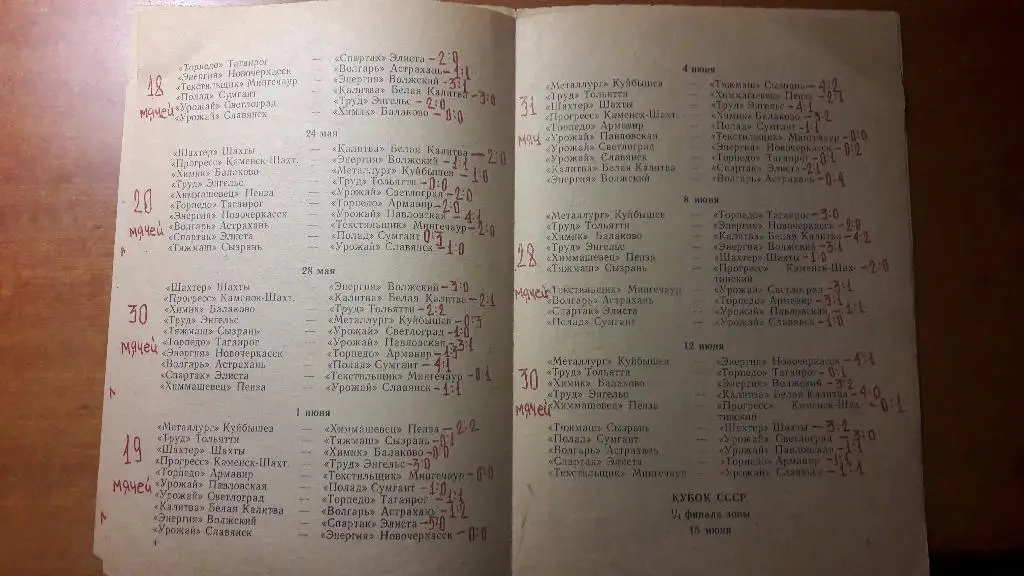 «Торпедо» Таганрог — «Спартак» Элиста – 2:0
«Энергия» Новочеркасск — «Волгарь» Астрахань – 1:1
18 «Текстильщик» Мингечаур — «Энергия» Волжский – 3:1
«Полад» Сумгаит — «Калитва» Белая Калитва – 3:0
мячей «Урожай» Светлоград — «Труд» Энгельс – 2:0
«Урожай» Славянск — «Химик» Балаково – 0:0
24 мая
«Шахтер» Шахты — «Калитва» Белая Калитва – 2:0
«Прогресс» Каменск-Шахт. — «Энергия» Волжский – 1:1
«Химик» Балаково — «Металлург» Куйбышев – 1:0
«Труд» Энгельс — «Труд» Тольятти – 0:0
20 «Химмашевец» Пенза — «Урожай» Светлоград – 2:0
«Торпедо» Таганрог — «Торпедо» Армавир – 2:0
«Энергия» Новочеркасск — «Урожай» Павловская – 4:1
мячей «Волгарь» Астрахань — «Текстильщик» Мингечаур – 2:0
«Спартак» Элиста — «Полад» Сумгаит
«Тяжмаш» Сызрань — «Урожай» Славянск – 1:0
28 мая
«Шахтер» Шахты — «Энергия» Волжский – 3:0
«Прогресс» Каменск-Шахт. — «Калитва» Белая Калитва – 2:1
30 «Химик» Балаково — «Труд» Тольятти – 2:2
«Труд» Энгельс — «Металлург» Куйбышев – 0:3
«Тяжмаш» Сызрань — «Урожай» Светлоград – 1:0
мячей «Торпедо» Таганрог — «Урожай» Павловская – 3:1
«Энергия» Новочеркасск — «Торпедо» Армавир
«Волгарь» Астрахань — «Полад» Сумгаит – 4:1
«Спартак» Элиста — «Текстильщик» Мингечаур – 0:1
«Химмашевец» Пенза — «Урожай» Славянск – 1:1
1 июня
«Металлург» Куйбышев — «Химмашевец» Пенза – 2:2
«Труд» Тольятти — «Тяжмаш» Сызрань – 0:1
19 «Шахтер» Шахты — «Химик» Балаково – 0:0
«Прогресс» Каменск-Шахт. — «Труд» Энгельс – 3:0
«Торпедо» Армавир — «Текстильщик» Мингечаур – 0:0
мячей «Урожай» Павловская — «Полад» Сумгаит – 1:0
«Урожай» Светлоград — «Торпедо» Таганрог – 1:1
«Калитва» Белая Калитва — «Волгарь» Астрахань – 1:2
«Энергия» Волжский — «Спартак» Элиста – 5:0
«Урожай» Славянск — «Энергия» Новочеркасск – 0:0
4
4 июня
«Металлург» Куйбышев — «Тяжмаш» Сызрань – 4:2
«Труд» Тольятти — «Химмашевец» Пенза – 2:1
31 «Шахтер» Шахты — «Труд» Энгельс – 4:1
«Прогресс» Каменск-Шахт. — «Химик» Балаково – 3:2
«Торпедо» Армавир — «Полад» Сумгаит – 1:1
мяч «Урожай» Павловская — «Текстильщик» Мингечаур – 0:0
«Урожай» Светлоград — «Энергия» Новочеркасск – 0:2
«Урожай» Славянск — «Торпедо» Таганрог – 0:1
«Калитва» Белая Калитва — «Спартак» Элиста – 2:1
«Энергия» Волжский — «Волгарь» Астрахань – 0:4
8 июня
«Металлург» Куйбышев — «Торпедо» Таганрог – 3:0
«Труд» Тольятти — «Энергия» Новочеркасск – 2:0
«Химик» Балаково — «Калитва» Белая Калитва – 4:2
«Труд» Энгельс — «Энергия» Волжский – 3:1
28 «Химмашевец» Пенза — «Шахтер» Шахты – 1:0
«Тяжмаш» Сызрань — «Прогресс» Каменск-Шах- – 2:0
тинский
мячей «Текстильщик» Мингечаур — «Урожай» Светлоград – 3:1
«Волгарь» Астрахань — «Торпедо» Армавир – 3:1
«Спартак» Элиста — «Урожай» Павловская – 1:1
«Полад» Сумгаит — «Урожай» Славянск – 1:0
12 июня
«Металлург» Куйбышев — «Энергия» Новочеркасск – 4:1
«Труд» Тольятти — «Торпедо» Таганрог – 0:1
30 «Химик» Балаково — «Энергия» Волжский – 3:2
«Труд» Энгельс — «Калитва» Белая Калитва – 4:0
мячей «Химмашевец» Пенза — «Прогресс» Каменск-Шах- – 0:1
тинский
«Тяжмаш» Сызрань — «Шахтер» Шахты – 3:2
«Полад» Сумгаит — «Урожай» Светлоград – 3:0
«Волгарь» Астрахань — «Урожай» Павловская – 1:1
«Спартак» Элиста — «Торпедо» Армавир
«Текстильщик» Мингечаур — «Урожай» Славянск
КУБОК СССР
1/4 финала зоны
15 июня